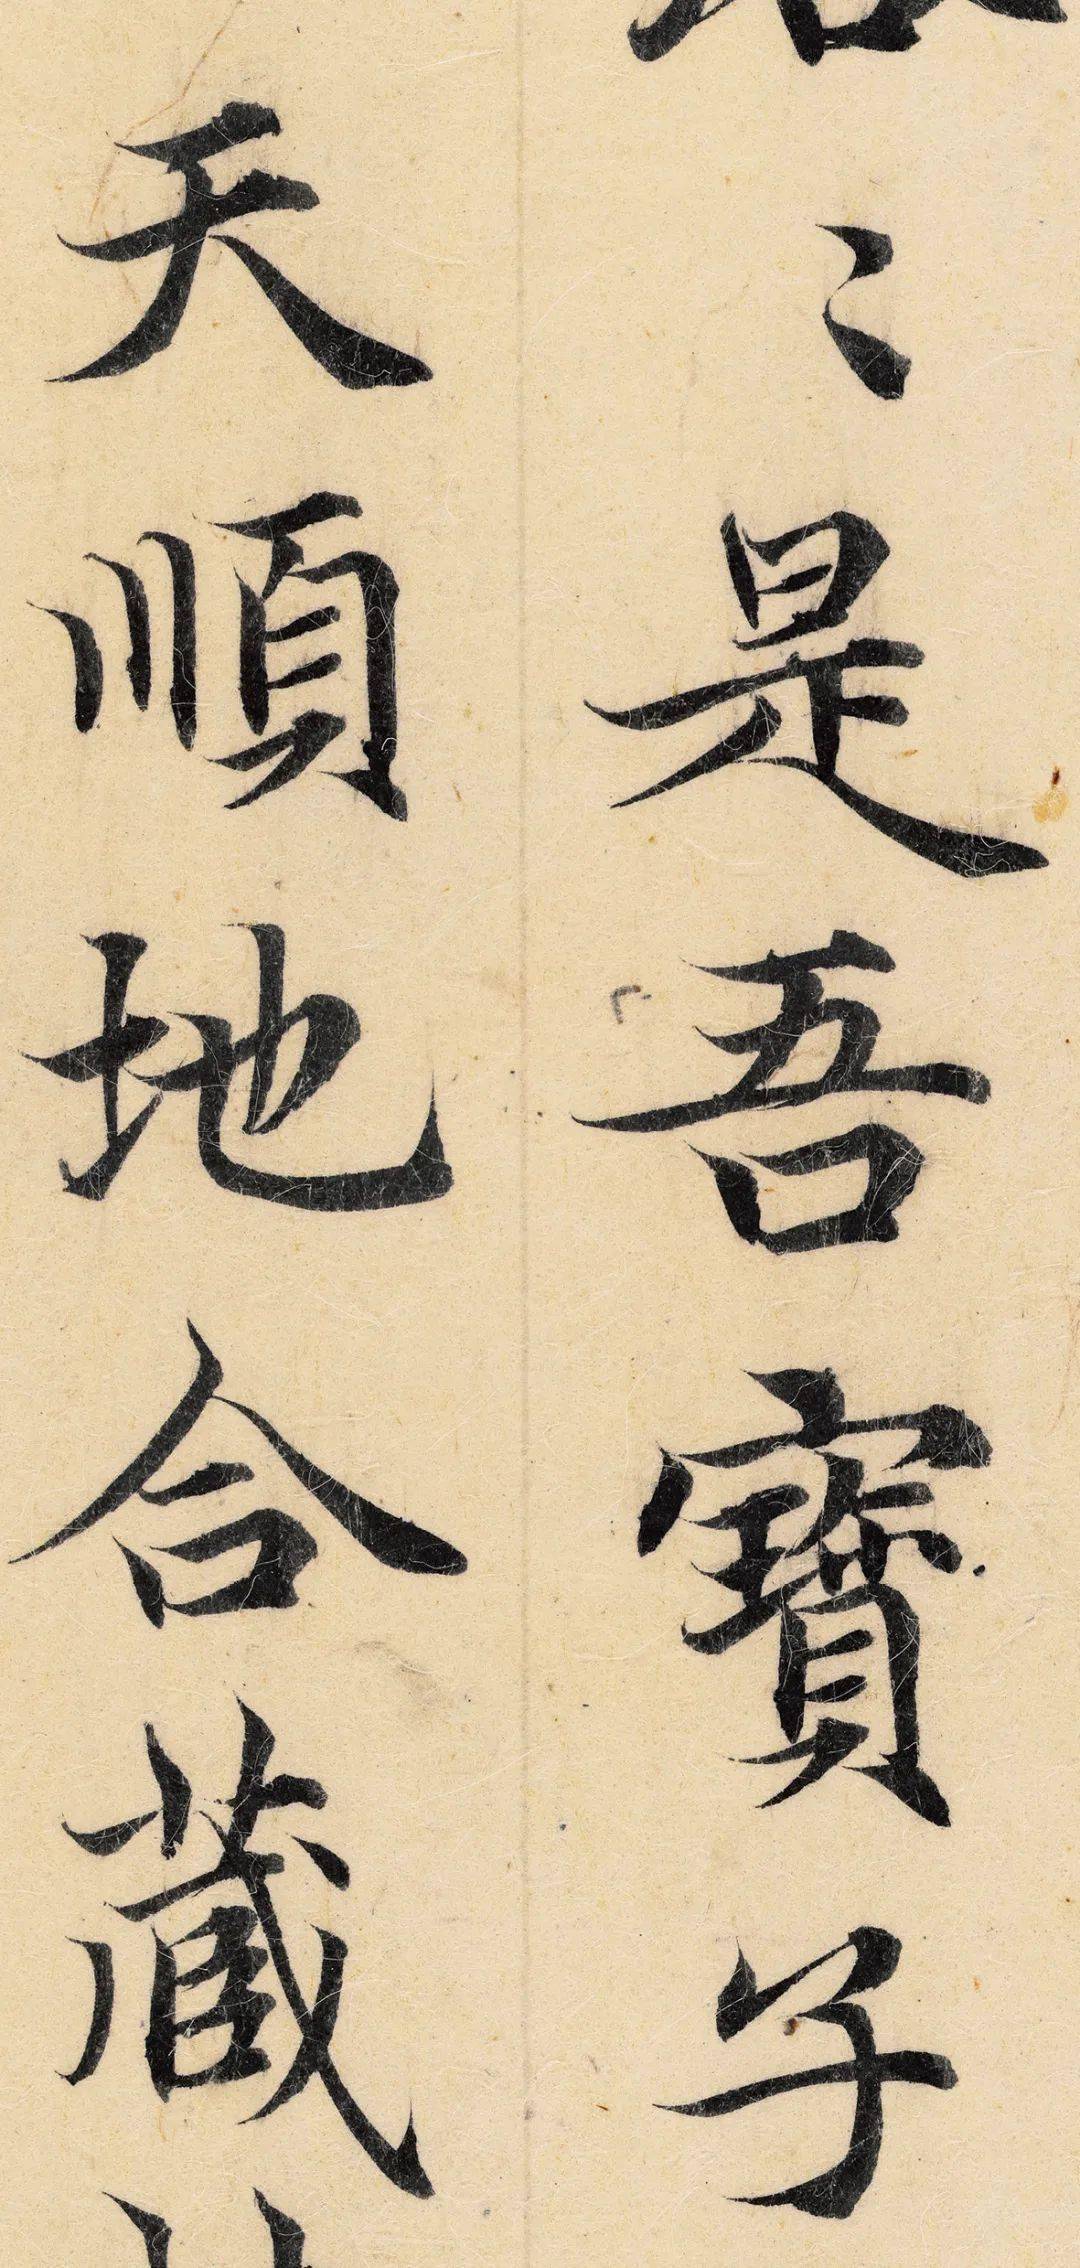 〻是吾寶子
天順地合藏